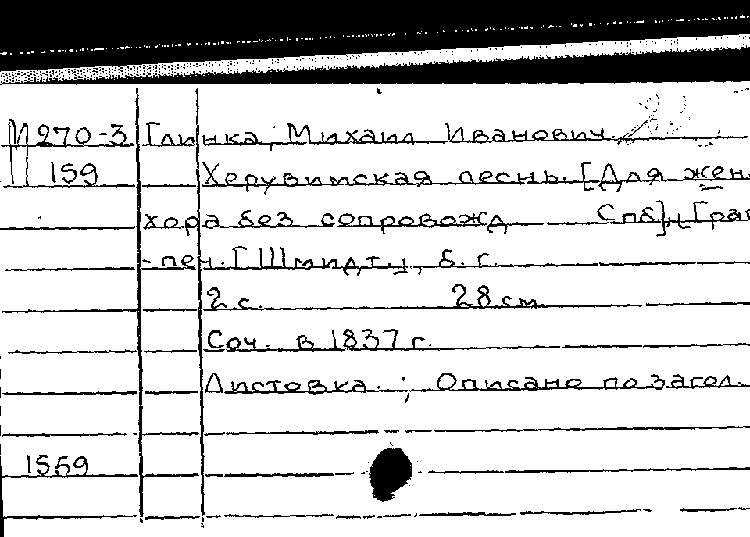 М 270-3 Глинка, Михаил Иванович.
159 Херувимская песнь. [Для жен.
хора без сопровожд Спб],
-печ. [Шмидт], б. г.
2 с. 28 см
Соч. в 1837 г.
Листовка. ; Описано по загол.
1559